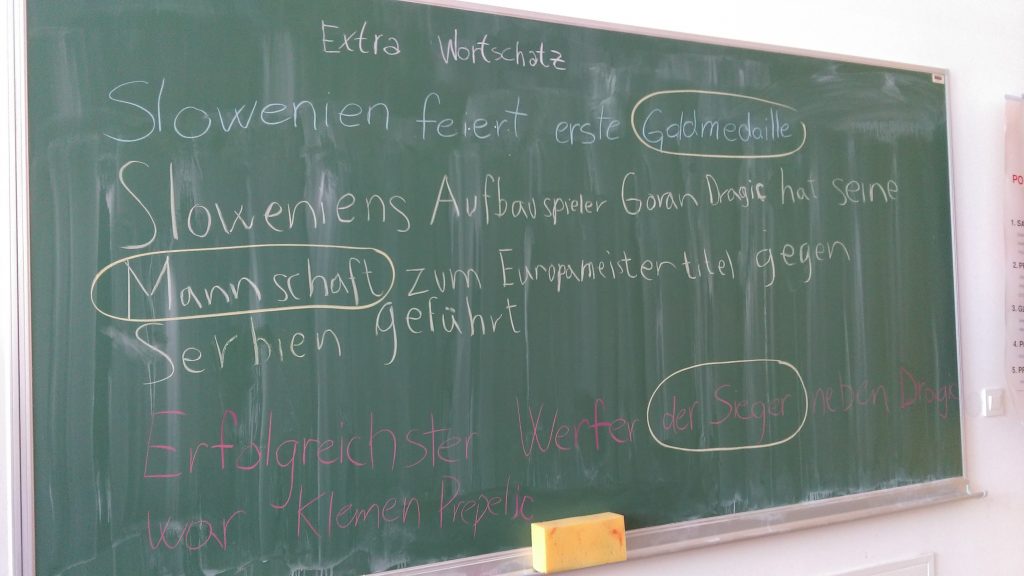 Extra Wortschatz
Slowenien feiert erste Goldmedaille
Sloweniens Aufbauspieler Goran Dragic hat seine
Mannschaft zum Europameistertitel gegen
Serbien geführt
Erfolgreichster Werfer der Sieger neben Dragic
war Klemen Prepelic
PO
1. SA
2. P
3. G
4. P
5. PF